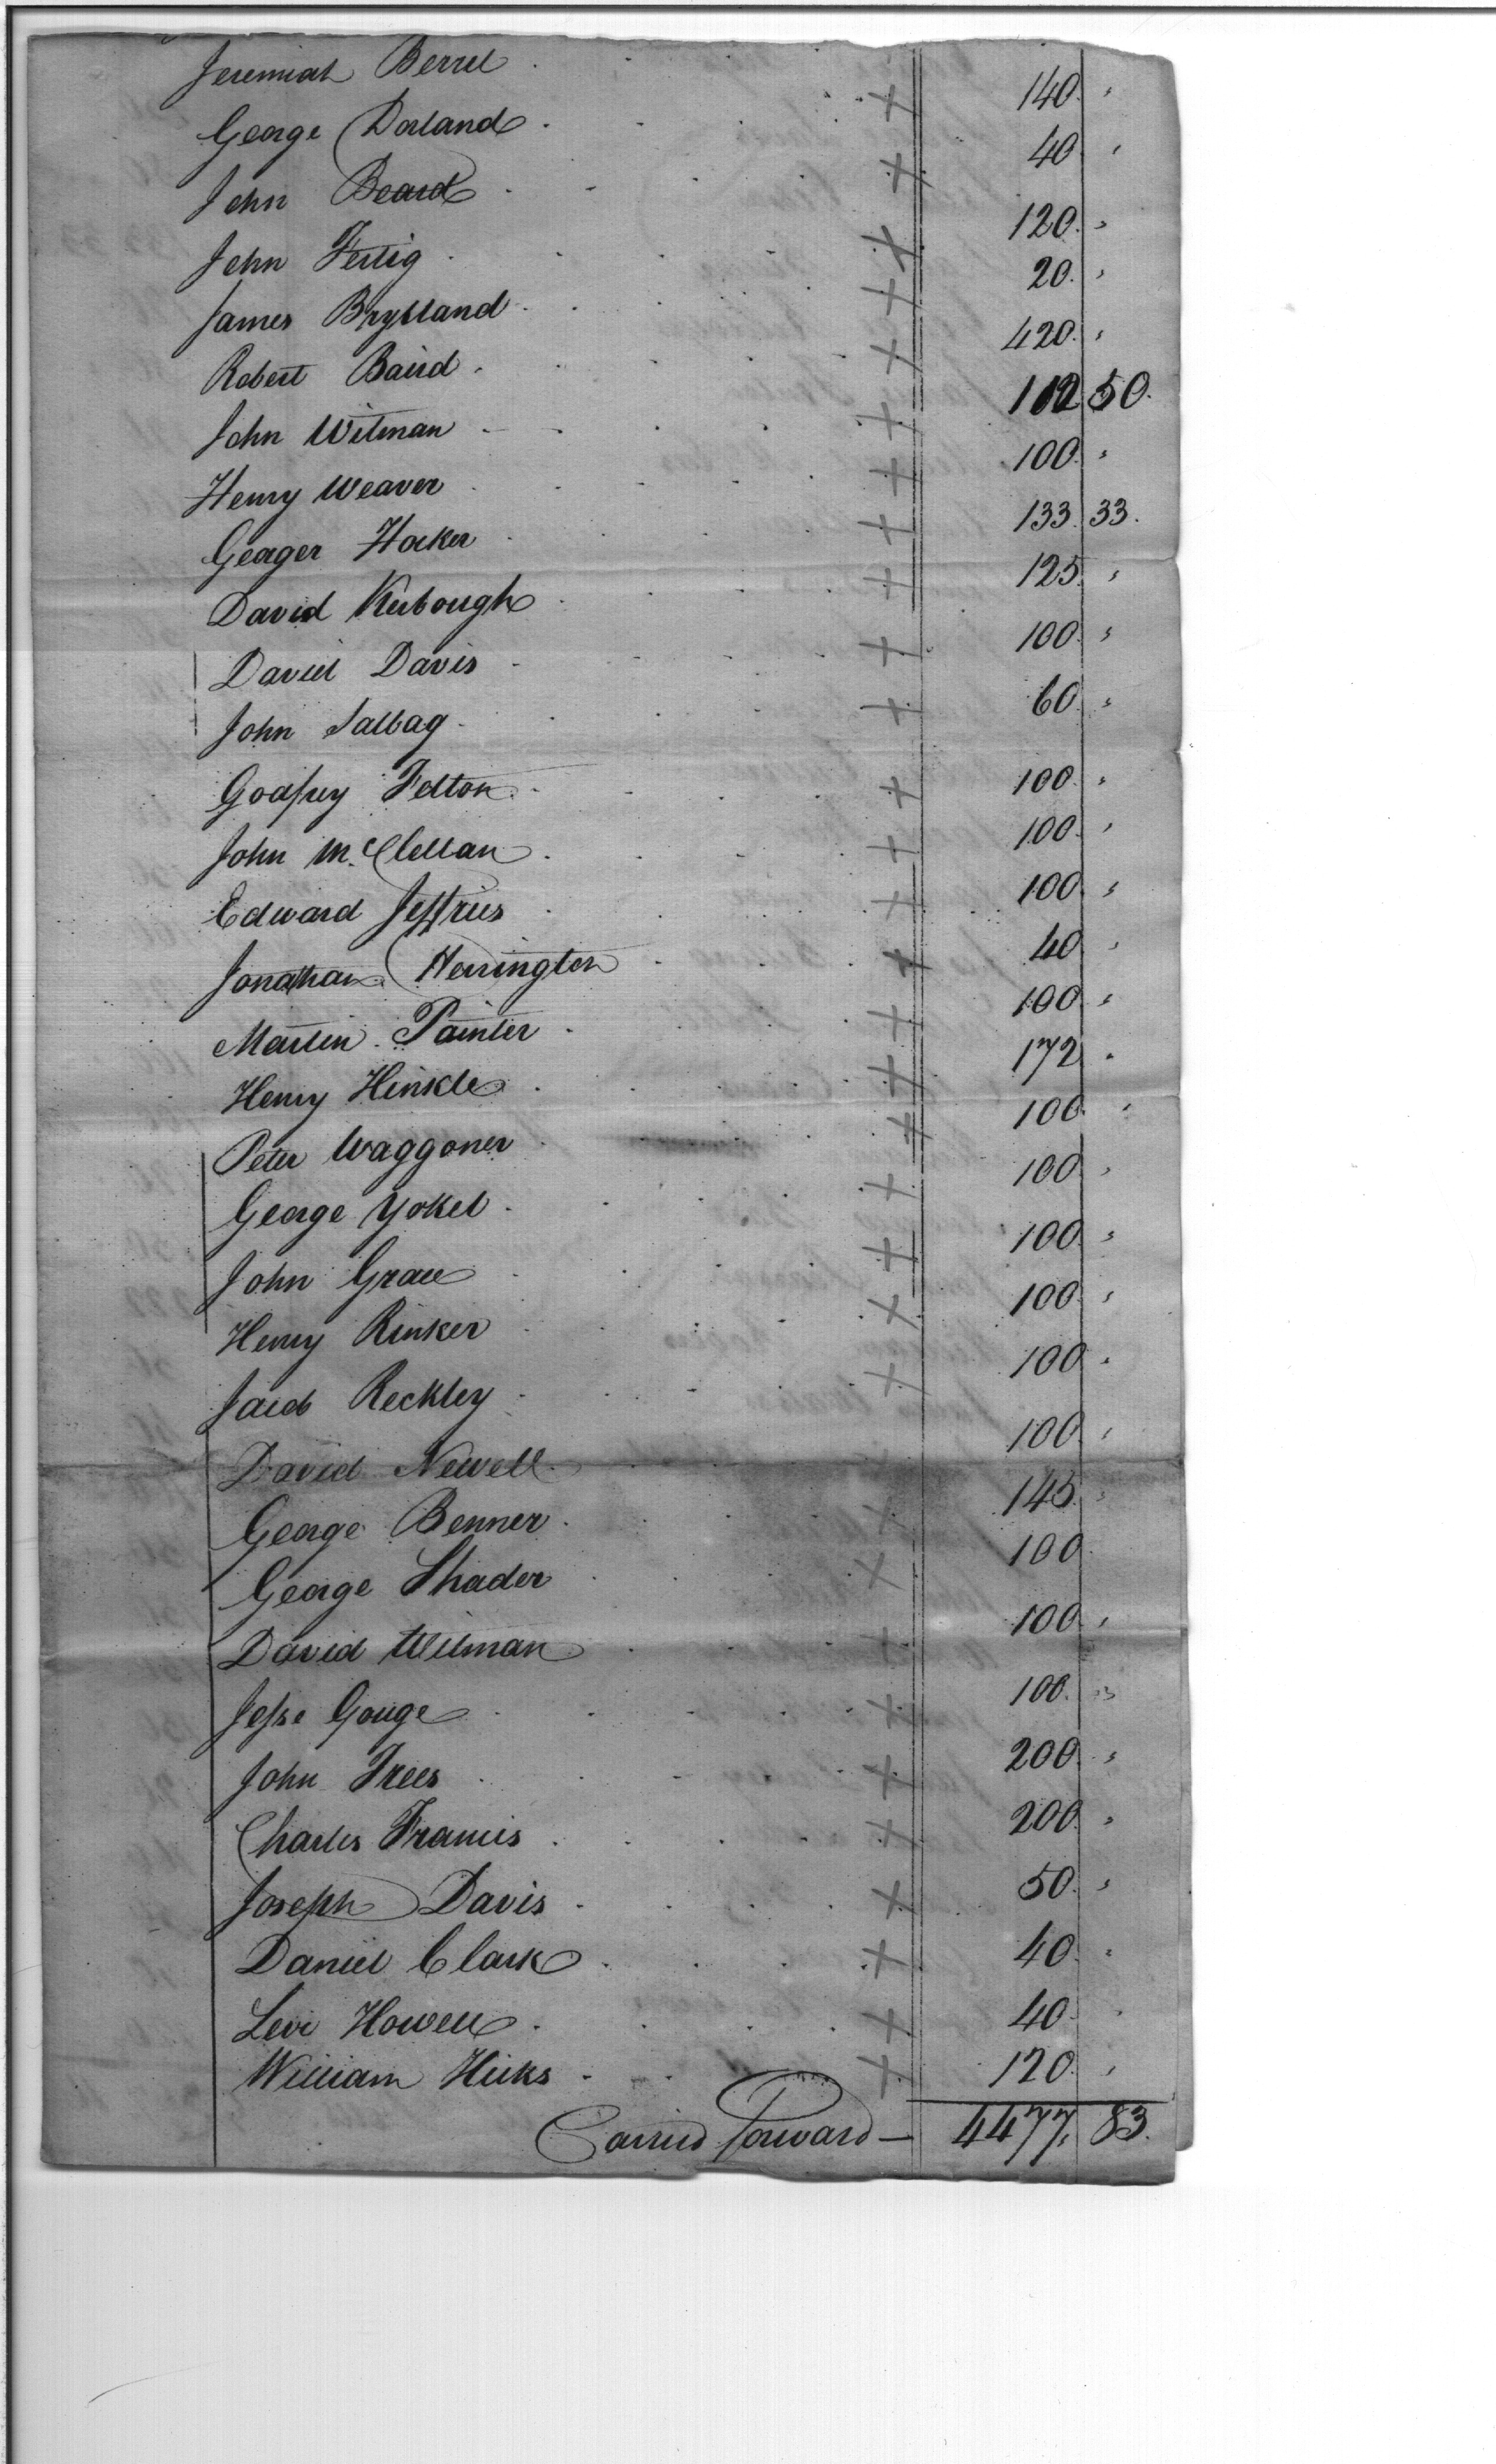 Jeremiah Berrel
George Dorland + 140
John Beard + 40
John Fertig + 120
James Brysland + 20
Robert Baird + 420
John Witman + 112 50
Henry Weaver + 100
Georger Hocker + 133 33
David Kerbough + 125
Daviel Davis + 100
John Salbag + 60
Godfrey Felton + 100
John McClellan + 100
Edward Jeffries + 100
Jonathan Herrington + 40
Martin Painter + 100
Henry Hinkle + 172
Peter Waggoner + 100
George Yokel + 100
John Grace + 100
Henry Rinker + 100
Jacob Reckley + 100
David Newell 100
George Benner + 145
George Shader + 100
David Witman + 100
Jesse Gouge + 100
John Trees + 200
Charles Francis + 200
Joseph Davis + 50
Daniel Clark + 40
Levi Howell + 40
William Hicks + 120
Carried Forward — 4477, 83